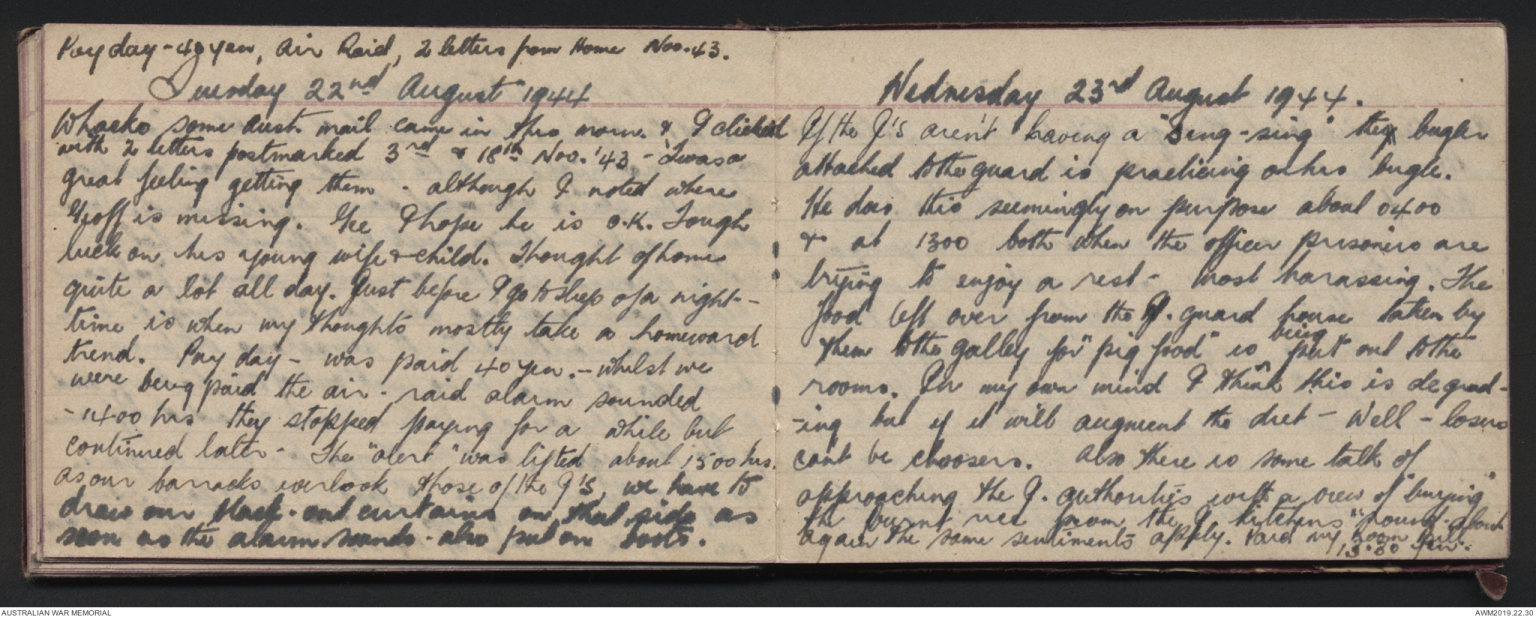 Pay day - 40 yen, Air Raid, 2 letters from Home Nov. 43.
Tuesday 22nd August 1944
Whacko some Aust. mail came in this morn. & I clicked
with 2 letters postmarked 3rd & 18th Nov. '43 - Twas a
great feeling getting them - although I noted where
Geoff is missing. Gee I hope he is O.K. Tough
luck on his young wife & child. Thought of home
quite a lot all day. Just before I go to sleep of a night-
time is when my thoughts mostly take a homeward
trend. Pay day - was paid 40 yen. - whilst we
were being paid the air-raid alarm sounded
- 1400 hrs they stopped paying for a while but
continued later - The "alert" was lifted about 1500 hrs.
as our barracks overlook those of the J's, we have to
draw our black-out curtains on that side as
soon as the alarm sounds - also put on boots.
Wednesday 23rd August 1944.
If the J's aren't having a "Sing-sing" the bugler
attached to the guard is practicing on his bugle.
He does this seemingly on purpose about 0400
& at 1300 both when the officer prisoners are
trying to enjoy a rest - most harassing. The
food left over from the J. guard house taken by
them to the galley for "pig food" is being put out to the
rooms. In my own mind I think this is degrad-
-ing but if it will augment the diet - Well - losers
cant be choosers. Also there is some talk of
approaching the J. authorities with a view of "buying"
the burnt rice from the J. kitchens "round about
again the same sentiments apply. Paid my Room bill
13.80 Yen.